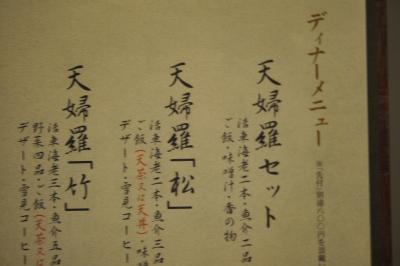 ディナーメニュー
※「先付」別途八〇〇円を頂戴
天婦羅セット
活車海老二本・魚介二品
ご飯・味噌汁・香の物
天婦羅「松」
活車海老二本・魚介三品
ご飯(天茶又は天丼)・味噌
デザート・雪見コーヒー
天婦羅「竹」
活車海老三本・魚介五品
野菜四品・ご飯(天茶又は
デザート・雪見コーヒー